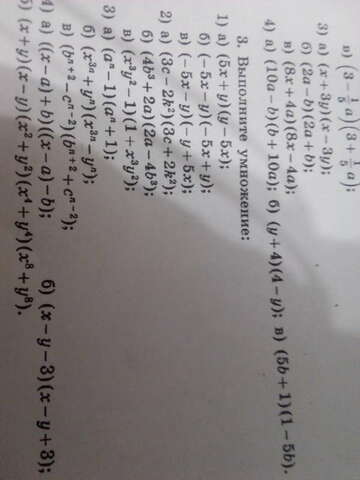 в) (3 − 1/5 a)(3 + 1/5 a);
3) а) (x + 3y)(x − 3y);
б) (2a − b)(2a + b);
в) (8x + 4a)(8x − 4a);
4) а) (10a − b)(b + 10a); б) (y + 4)(4 − y); в) (5b + 1)(1 − 5b).
3. Выполните умножение:
1) а) (5x + y)(y − 5x);
б) (−5x − y)(−5x + y);
в) (−5x − y)(−y + 5x);
2) а) (3c − 2k²)(3c + 2k²);
б) (4b³ + 2a)(2a − 4b³);
в) (x³y² − 1)(1 + x³y²);
3) а) (aⁿ − 1)(aⁿ + 1);
б) (x³ⁿ + yⁿ)(x³ⁿ − yⁿ);
в) (bⁿ⁺² − cⁿ⁻²)(bⁿ⁺² + cⁿ⁻²);
4) а) ((x − a) + b)((x − a) − b); б) (x − y − 3)(x − y + 3);
5) (x + y)(x − y)(x² + y²)(x⁴ + y⁴)(x⁸ + y⁸).